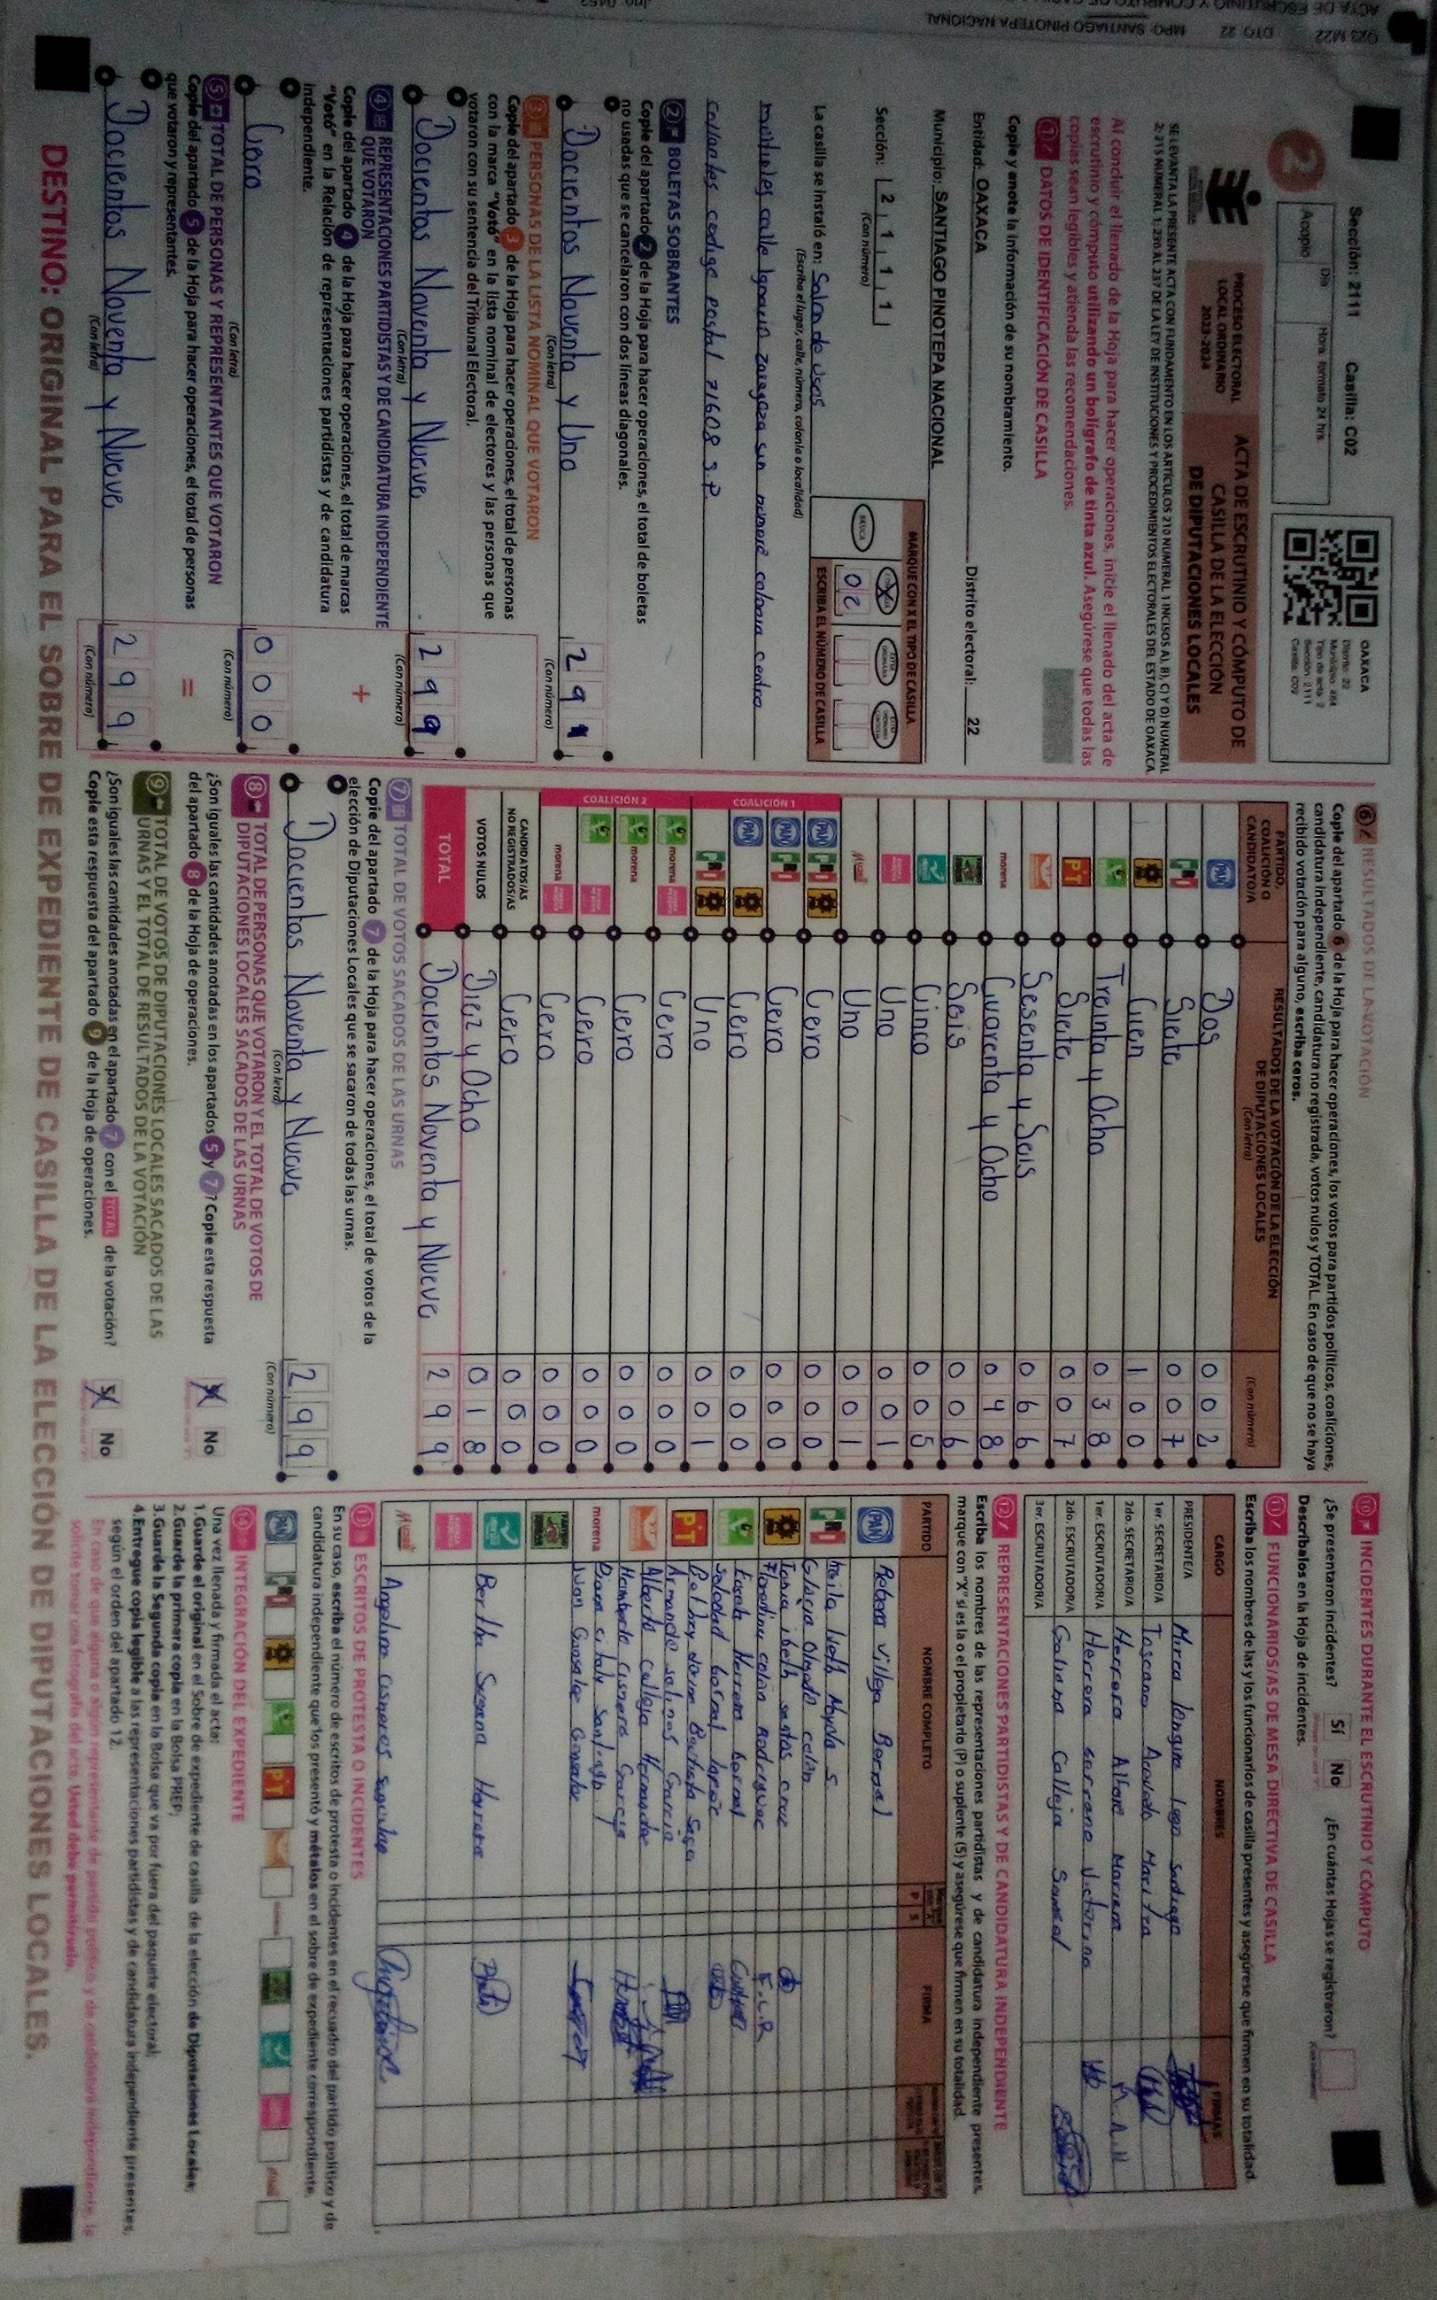 Sección: 2111 Casilla: C02
OAXACA
Distrito: 22
Sección: 2111
Casilla: C02
2
Acopio
Día
Hora formato 24 hrs
PROCESO ELECTORAL
LOCAL ORDINARIO
2023-2024
ACTA DE ESCRUTINIO Y CÓMPUTO DE
CASILLA DE LA ELECCIÓN
DE DIPUTACIONES LOCALES
SE LEVANTA LA PRESENTE ACTA CON FUNDAMENTO EN LOS ARTÍCULOS 210 NUMERAL 1 INCISOS A), B), C) Y D) NUMERAL
2; 215 NUMERAL 1; 230 AL 237 DE LA LEY DE INSTITUCIONES Y PROCEDIMIENTOS ELECTORALES DEL ESTADO DE OAXACA.
Al concluir el llenado de la Hoja para hacer operaciones, inicie el llenado del acta de
escrutinio y cómputo utilizando un bolígrafo de tinta azul. Asegúrese que todas las
copias sean legibles y atienda las recomendaciones.
1 DATOS DE IDENTIFICACIÓN DE CASILLA
Copie y anote la información de su nombramiento.
Entidad: OAXACA Distrito electoral: 22
Municipio: SANTIAGO PINOTEPA NACIONAL
Sección: 2 1 1 1
(Con número)
MARQUE CON X EL TIPO DE CASILLA
BÁSICA
ESCRIBA EL NÚMERO DE CASILLA
02
La casilla se instaló en: Salon de usos
(Escriba el lugar, calle, número, colonia o localidad)
multiples calle Ignacio zaragoza sin numero colonia centro
collantes codigo postal 71608 S.P
2 BOLETAS SOBRANTES
Copie del apartado 2 de la Hoja para hacer operaciones, el total de boletas
no usadas que se cancelaron con dos líneas diagonales.
Docientos Noventa y Uno 291
(Con letra) (Con número)
3 PERSONAS DE LA LISTA NOMINAL QUE VOTARON
Copie del apartado 3 de la Hoja para hacer operaciones, el total de personas
con la marca "Votó" en la lista nominal de electores y las personas que
votaron con su sentencia del Tribunal Electoral.
Docientos Noventa y Nueve 299
(Con letra) (Con número)
4 REPRESENTACIONES PARTIDISTAS Y DE CANDIDATURA INDEPENDIENTE
QUE VOTARON
Copie del apartado 4 de la Hoja para hacer operaciones, el total de marcas
"Votó" en la Relación de representaciones partidistas y de candidatura
independiente.
+
Cero 000
(Con letra) (Con número)
5 TOTAL DE PERSONAS Y REPRESENTANTES QUE VOTARON
Copie del apartado 5 de la Hoja para hacer operaciones, el total de personas
que votaron y representantes.
=
Docientos Noventa y Nueve 299
(Con letra) (Con número)
6 RESULTADOS DE LA VOTACIÓN
Copie del apartado 6 de la Hoja para hacer operaciones, los votos para partidos políticos, coaliciones,
candidatura independiente, candidatura no registrada, votos nulos y TOTAL. En caso de que no se haya
recibido votación para alguno, escriba ceros.
PARTIDO,
COALICIÓN O
CANDIDATO/A
RESULTADOS DE LA VOTACIÓN DE LA ELECCIÓN
DE DIPUTACIONES LOCALES
(Con letra)
(Con número)
PAN Dos 002
PRI Siete 007
Cien 100
Treinta y Ocho 038
PT Siete 007
Sesenta y Seis 066
morena Cuarenta y Ocho 048
Seis 006
Cinco 005
Uno 001
Uno 001
COALICIÓN 1
PAN PRI Cero 000
PAN PRI Cero 000
PAN Cero 000
PRI Uno 001
COALICIÓN 2
morena Cero 000
morena Cero 000
Cero 000
morena Cero 000
CANDIDATOS/AS
NO REGISTRADOS/AS Cero 000
VOTOS NULOS Diez y Ocho 018
TOTAL Docientos Noventa y Nueve 299
7 TOTAL DE VOTOS SACADOS DE LAS URNAS
Copie del apartado 7 de la Hoja para hacer operaciones, el total de votos de la
elección de Diputaciones Locales que se sacaron de todas las urnas.
Docientos Noventa y Nueve 299
(Con letra) (Con número)
8 TOTAL DE PERSONAS QUE VOTARON Y EL TOTAL DE VOTOS DE
DIPUTACIONES LOCALES SACADOS DE LAS URNAS
¿Son iguales las cantidades anotadas en los apartados 5 y 7? Copie esta respuesta
del apartado 8 de la Hoja de operaciones.
Sí No
9 TOTAL DE VOTOS DE DIPUTACIONES LOCALES SACADOS DE LAS
URNAS Y EL TOTAL DE RESULTADOS DE LA VOTACIÓN
¿Son iguales las cantidades anotadas en el apartado 7 con el TOTAL de la votación?
Copie esta respuesta del apartado 9 de la Hoja de operaciones.
Sí No
10 INCIDENTES DURANTE EL ESCRUTINIO Y CÓMPUTO
¿Se presentaron incidentes? Sí No ¿En cuántas Hojas se registraron?
Descríbalos en la Hoja de incidentes.
11 FUNCIONARIOS/AS DE MESA DIRECTIVA DE CASILLA
Escriba los nombres de las y los funcionarios de casilla presentes y asegúrese que firmen en su totalidad.
CARGO NOMBRES FIRMAS
PRESIDENTE/A
1er. SECRETARIO/A Toscano Acevedo Maritza
2do. SECRETARIO/A Herrera Alfaro Mariana
1er. ESCRUTADOR/A Herrera serrano Victorina
2do. ESCRUTADOR/A Calleja
3er. ESCRUTADOR/A
12 REPRESENTACIONES PARTIDISTAS Y DE CANDIDATURA INDEPENDIENTE
Escriba los nombres de las representaciones partidistas y de candidatura independiente presentes,
marque con "X" si es la o el propietario (P) o suplente (S) y asegúrese que firmen en su totalidad.
PARTIDO NOMBRE COMPLETO P S FIRMA
PAN Villega Bernal
PRI
Florentina colón Rodriguez F.C.R
Herrera bernal
PT Armando salinas Garcia
Alberto calleja Hernandez
Humberto cisneros Garcia
morena Diana citlaly santiago
Juan Gonzalez Gonzalez
Bertha Susana Herrera
Angelina cisneros
13 ESCRITOS DE PROTESTA O INCIDENTES
En su caso, escriba el número de escritos de protesta o incidentes en el recuadro del partido político y de
candidatura independiente que los presentó y métalos en el sobre de expediente correspondiente.
PAN PRI PT
14 INTEGRACIÓN DEL EXPEDIENTE
Una vez llenada y firmada el acta:
1. Guarde el original en el Sobre de expediente de casilla de la elección de Diputaciones Locales;
2. Guarde la primera copia en la Bolsa PREP;
3. Guarde la Segunda copia en la Bolsa que va por fuera del paquete electoral;
4. Entregue copia legible a las representaciones partidistas y de candidatura independiente presentes,
según el orden del apartado 12.
En caso de que alguna o algún representante de partido político y de candidatura independiente, le
solicite tomar una fotografía del acta, Usted debe permitírselo.
DESTINO: ORIGINAL PARA EL SOBRE DE EXPEDIENTE DE CASILLA DE LA ELECCIÓN DE DIPUTACIONES LOCALES.
DTO. 22 MPO. SANTIAGO PINOTEPA NACIONAL